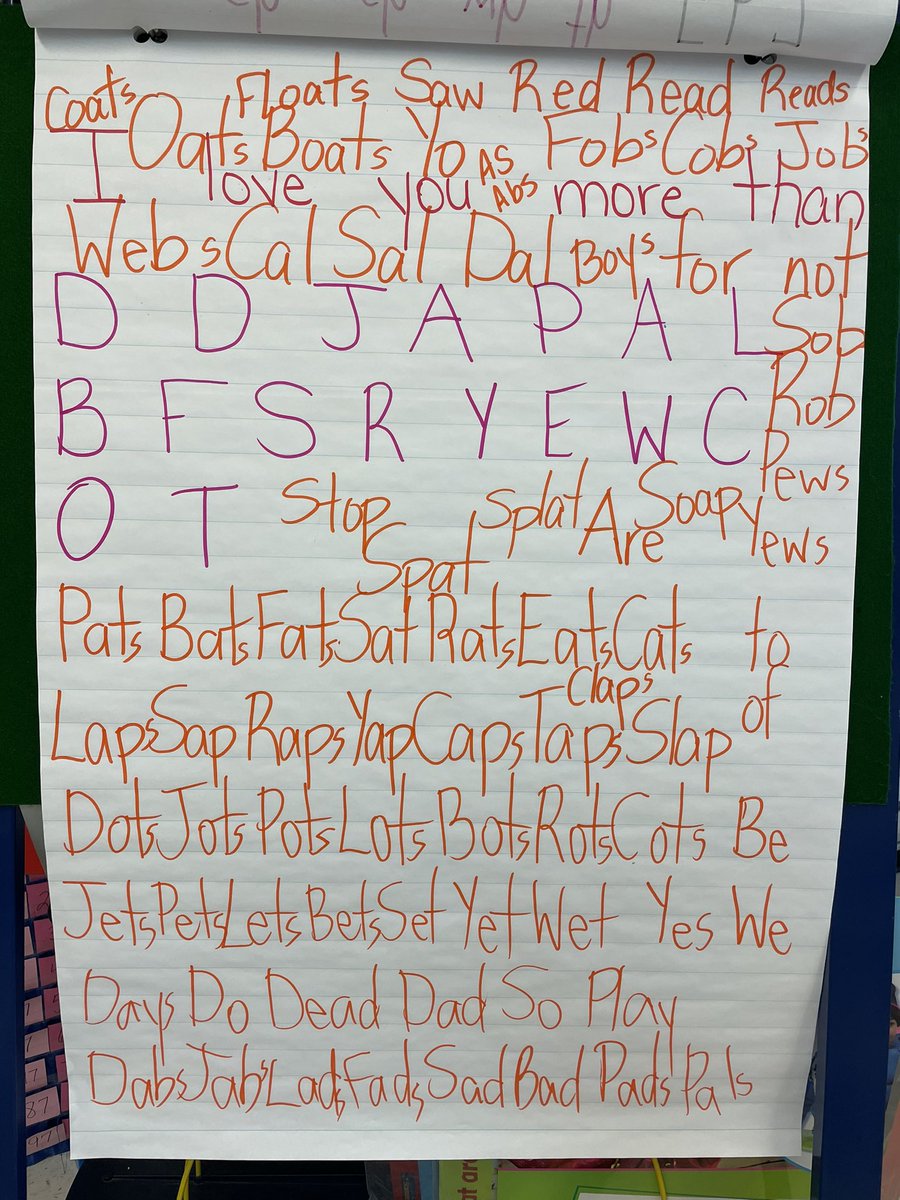 Floats Saw Red Read Reads
Coats Oats Boats Yo As Fobs Cobs Jobs
I love you Abs more than
Webs Cal Sal Dal Boys for not
D D J A P A L Sob
Rob
B F S R Y E W C Pews
O T Stop Splat Are Soap Yews
Spat
Pats Bats Fats Sat Rats Eats Cats to
Claps
Laps Sap Raps Yap Caps Taps Slap of
Dots Jots Pots Lots Bots Rots Cots Be
Jets Pets Lets Bets Set Yet Wet Yes We
Days Do Dead Dad So Play
Dabs Jabs Lads Fads Sad Bad Pads Pals
87
97